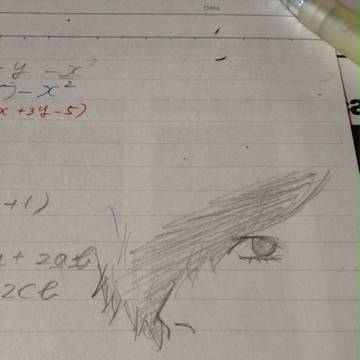 Date
y - x²
) - x²
x + 3y - 5)
+ 1)
+ 2ab
2cb